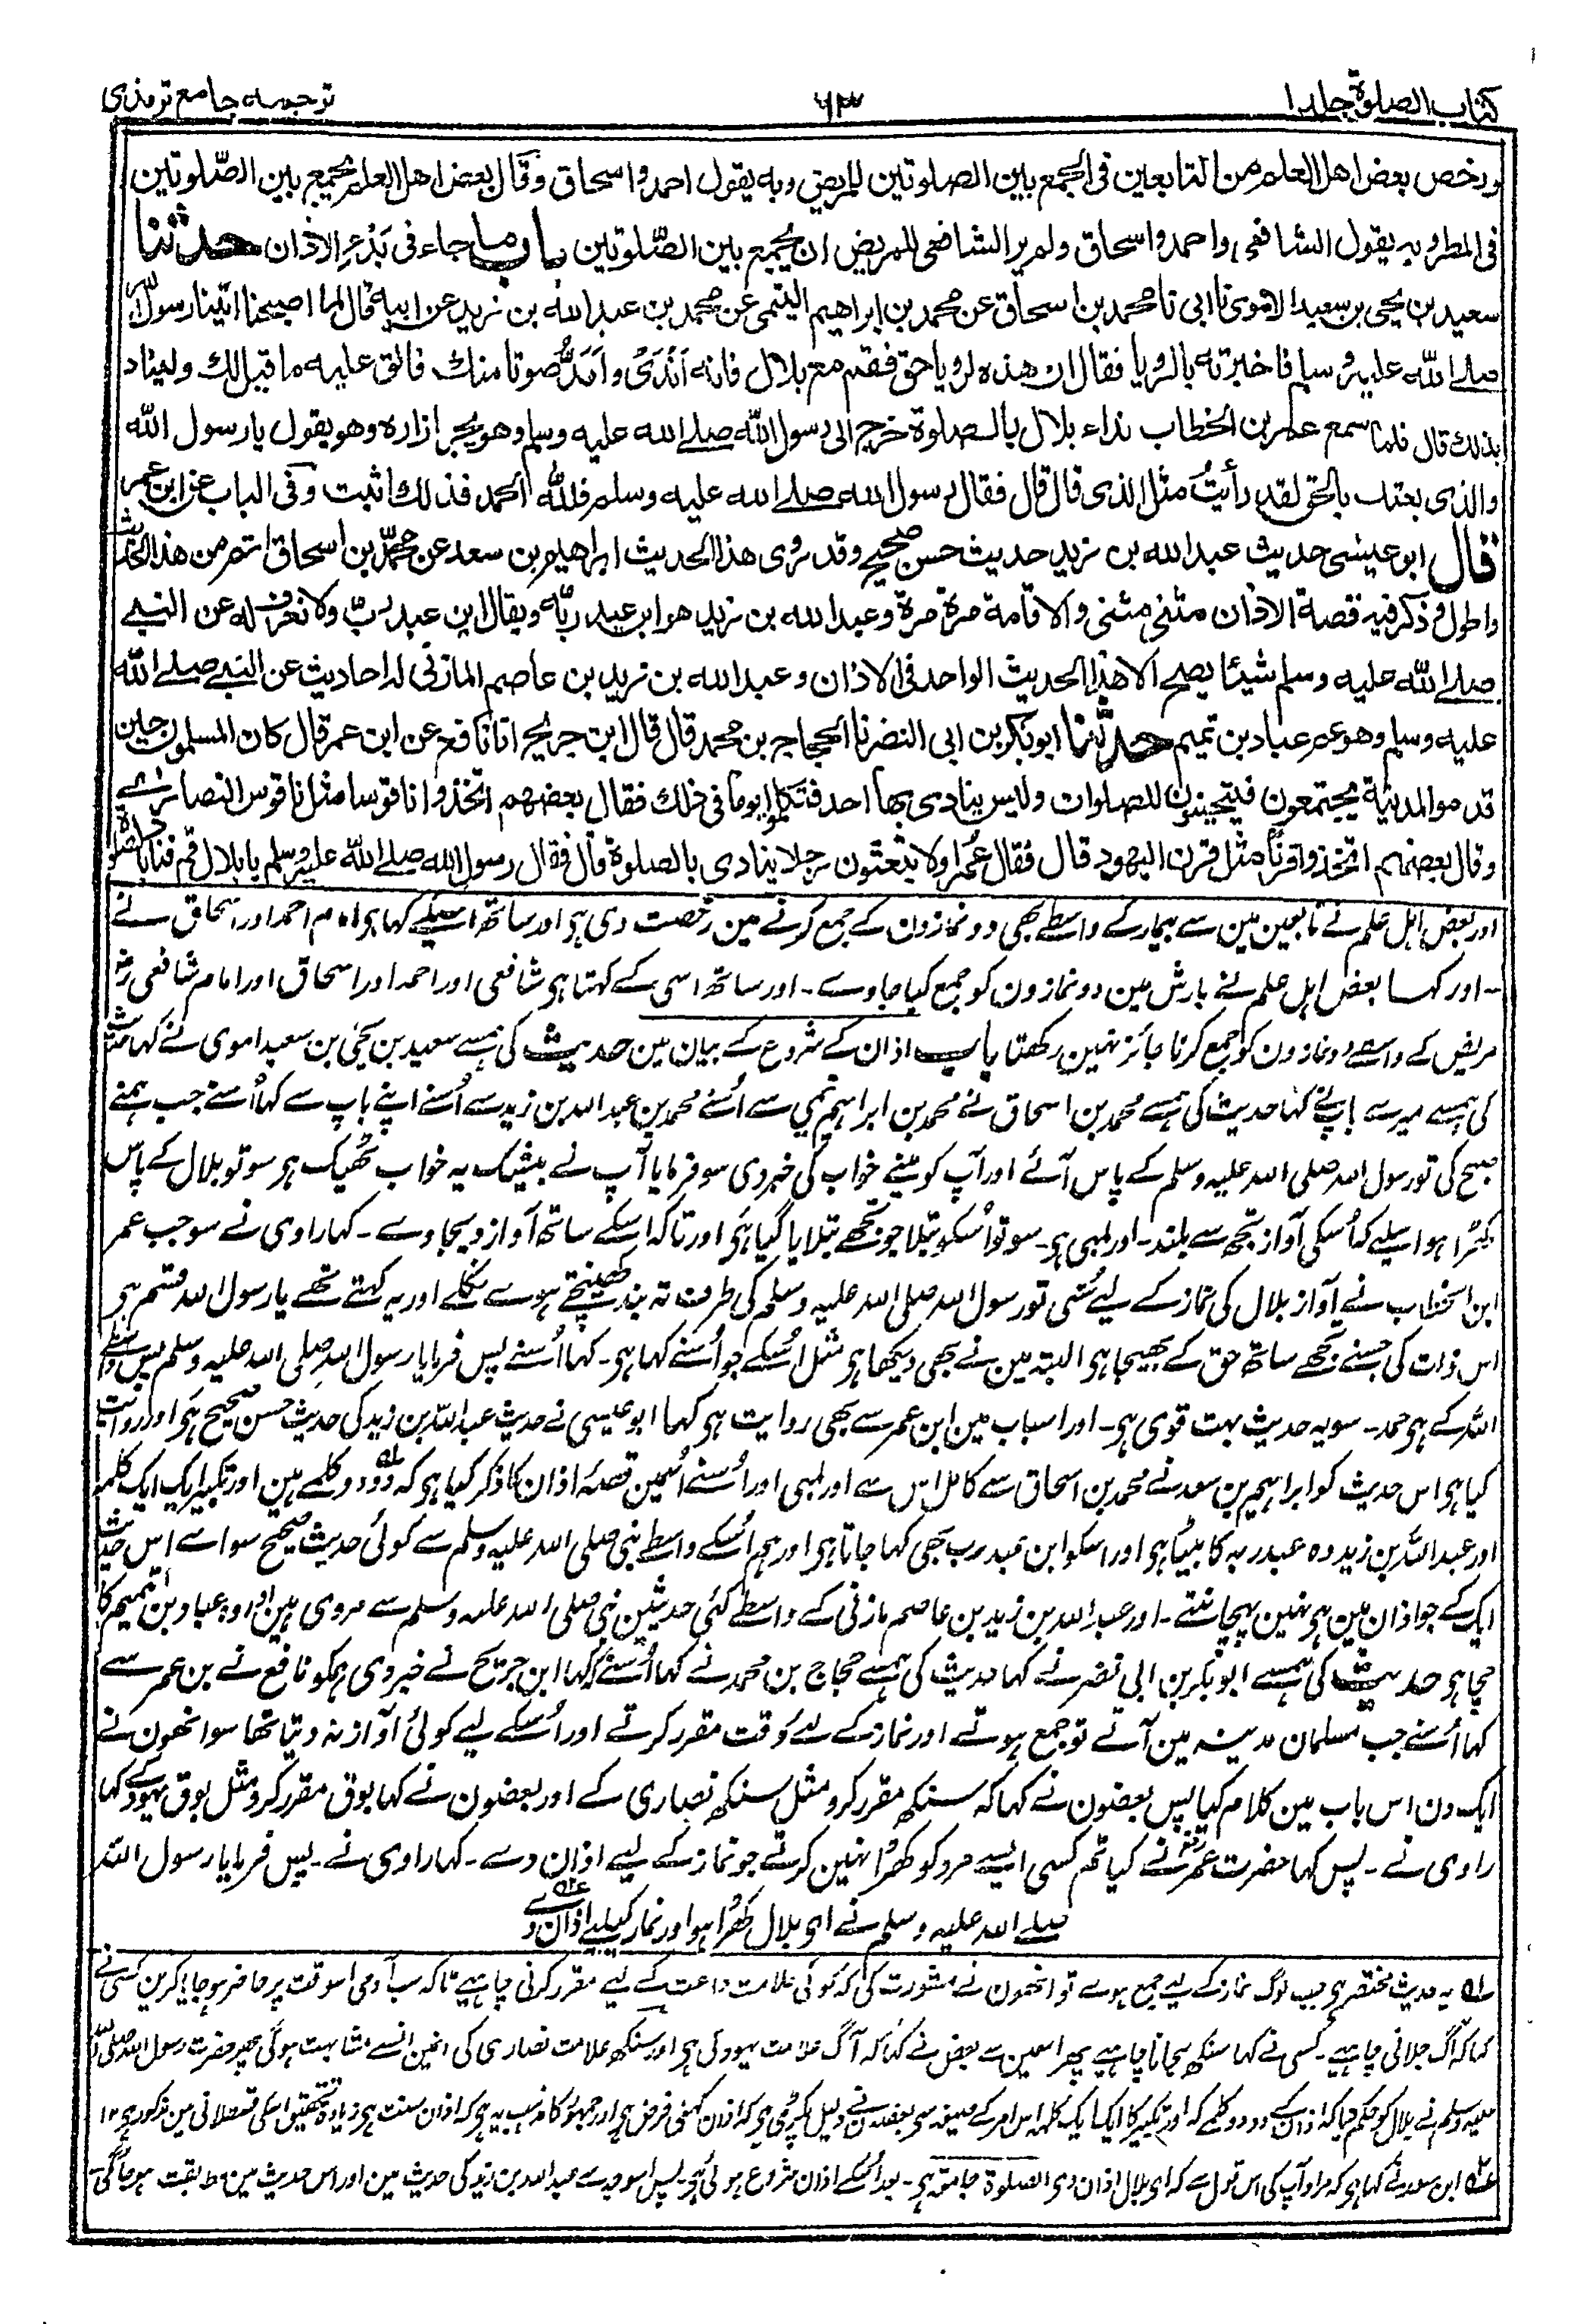 کتاب الصلوة جلد ۱
۶۳
ترجمہ جامع ترمذی
ورخص بعض اهل العلم من التابعین فی الجمع بین الصلوتین للمریض وبه یقول احمد واسحاق وقال بعض اهل العلم یجمع بین الصّلوتین
فی المطر وبه یقول الشافعی واحمد واسحاق ولم یر الشافعی للمریض ان یجمع بین الصّلوتین باب ما جاء فی بَدْءِ الاذان حدثنا
سعید بن یحیی بن سعید الاموی نا ابی نا محمد بن اسحاق عن محمد بن ابراهیم التیمی عن محمد بن عبد الله بن زید عن ابیه قال لما اصبحنا اتینا رسول الله
صلے الله علیه وسلم فاخبرته بالرویا فقال ان هذه لرویا حق فقم مع بلال فانه اَنْدَیٰ واَمَدُّ صوتا منك فالق علیه ما قیل لك ولیناد
بذلك قال فلما سمع عمر بن الخطاب نداء بلال بالصلوة خرج الی رسول الله صلے الله علیه وسلم وهو یجر ازاره وهو یقول یا رسول الله
والذی بعثك بالحق لقد رأیتُ مثل الذی قال قال فقال رسول الله صلے الله علیه وسلم فلله الحمد فذلك اثبت وفی الباب عن ابن عمر
قال ابو عیسی حدیث عبد الله بن زید حدیث حسن صحیح وقد روی هذا الحدیث ابراهیم بن سعد عن محمد بن اسحاق اتم من هذا الحدیث
واطول وذكر فیه قصة الاذان مثنی مثنی والاقامة مرة مرة وعبد الله بن زید هو ابن عبد ربّه ویقال ابن عبد ربّ ولا نعرف له عن النبے
صلے الله علیه وسلم شیئا یصح الا هذا الحدیث الواحد فی الاذان وعبد الله بن زید بن عاصم المازنی له احادیث عن النبے صلے الله
علیه وسلم وهو عم عباد بن تمیم حدثنا ابو بکر بن ابی النضر نا الحجاج بن محمد قال قال ابن جریج انا نافع عن ابن عمر قال کان المسلمون حین
قدموا المدینة یجتمعون فیتحینون للصلوات ولیس ینادی بها احد فتکلموا یوما فی ذلك فقال بعضهم اتخذوا ناقوسا مثل ناقوس النصارے
وقال بعضهم اتخذوا قرنا مثل قرن الیهود قال فقال عُمَر اولا تبعثون رجلا ینادی بالصلوة قال فقال رسول الله صلے الله علیه وسلم یا بلال قم فناد بالصلوة
اور بعض اہل علم نے تابعین مین سے بیمار کے واسطے بھی دو نمازون کے جمع کرنے مین رخصت دی ہو اور ساتھ اسیکے کہا ہو امام احمد اور اسحاق نے
- اور کہا بعض اہل علم نے بارش مین دو نمازون کو جمع کیا جاوے - اور ساتھ اسی کے کہتا ہو شافعی اور احمد اور اسحاق اور امام شافعی رضہ
مریض کے واسطے دو نمازون کو جمع کرنا جائز نہین رکھتا باب اذان کے شروع کے بیان مین حدیث کی ہمسے سعید بن یحیٰی بن سعید اموی نے کہا حدیث
کی ہمسے میرے باپنے کہا حدیث کی ہمسے محمد بن اسحاق نے محمد بن ابراہیم تیمی سے اُسنے محمد بن عبد اللہ بن زید سے اُسنے اپنے باپ سے کہا اُسنے جب ہمنے
صبح کی تو رسول اللہ صلی اللہ علیہ وسلم کے پاس آئے اور آپ کو مینے خواب کی خبر دی سو فرمایا آپ نے بیشک یہ خواب ٹھیک ہو سو تو بلال کے پاس
کھڑا ہو اسلیے کہ اُسکی آواز تجھ سے بلند - اور لمبی ہو - سو تو اُسکو بتلا جو تجھے بتلایا گیا ہو اور تاکہ اسکے ساتھ آواز دیجاوے - کہا راوی نے سو جب عمر
ابن الخطاب نے آواز بلال کی نماز کے لیے سُنی تو رسول اللہ صلی اللہ علیہ وسلم کی طرف تہ بند کھینچتے ہوے نکلے اور یہ کہتے تھے یا رسول اللہ قسم ہو
اس ذات کی جسنے تجھے ساتھ حق کے بھیجا ہو البتہ مین نے بھی دیکھا ہو مثل اُسکے جو اُسنے کہا ہو - کہا اُسنے پس فرمایا رسول اللہ صلی اللہ علیہ وسلم پس واسطے
اللہ کے ہو حمد - سو یہ حدیث بہت قوی ہو - اور اسباب مین ابن عمر سے بھی روایت ہو کہا ابو عیسی نے حدیث عبد اللہ بن زید کی حدیث حسن صحیح ہو اور روایت
کیا ہو اس حدیث کو ابراہیم بن سعد نے محمد بن اسحاق سے کامل اس سے اور لمبی اور اُسنے اُسمین قصہٴ اذان کا ذکر کیا ہو کہ دو دو کلمے ہین اور تکبیر ایک ایک کلمہ
اور عبد اللہ بن زید وہ عبد ربہ کا بیٹا ہو اور اسکو ابن عبد رب بھی کہا جاتا ہو اور ہم اُسکے واسطے نبی صلی اللہ علیہ وسلم سے کوئی حدیث صحیح سواے اس حدیث
ایک کے جو اذان مین ہو نہین پہچانتے - اور عبد اللہ بن زید بن عاصم مازنی کے واسطے کئی حدیثین نبی صلی اللہ علیہ وسلم سے مروی ہین اور وہ عباد بن تمیم کا
چچا ہو حدیث کی ہمسے ابو بکر بن ابی نضر نے کہا حدیث کی ہمسے حجاج بن محمد نے کہا اُسنے کہا ابن جریج نے خبر دی ہمکو نافع نے بن عمر سے
کہا اُسنے جب مسلمان مدینہ مین آتے تو جمع ہوتے اور نماز کے لیے وقت مقرر کرتے اور اُسکے لیے کوئی آواز نہ دیتا تھا سو انھون نے
ایک دن اس باب مین کلام کیا پس بعضون نے کہا کہ سنکھ مقرر کرو مثل سنکھ نصاری کے اور بعضون نے کہا بوق مقرر کرو مثل بوق یہود کے کہا
راوی نے - پس کہا حضرت عمر نے کیا تم کسی ایسے مرد کو کھڑا نہین کرتے جو نماز کے لیے اذان دے - کہا راوی نے - پس فرمایا رسول اللہ
صلے اللہ علیہ وسلم نے ای بلال کھڑا ہو اور نماز کیلیے اذان دے
یہ حدیث مختصر ہو جب لوگ نماز کے لیے جمع ہوے تو انھون نے مشورت کی کہ کوئی علامت جماعت کے لیے مقرر کرنی چاہیے تاکہ سب آدمی اسوقت پر حاضر ہو جایا کرین کسی نے
کہا کہ آگ جلانی چاہیے - کسی نے کہا سنکھ بجانا چاہیے پھر اسمین سے بعض نے کہا کہ آگ علامت یہود کی ہو اور سنکھ علامت نصاری کی انمین انسے مشابہت ہوگی پھر حضرت رسول اللہ صلی اللہ
علیہ وسلم نے بلال کو حکم دیا کہ اذان کے دو دو کلمے کہ اور تکبیر کا ایک ایک کلمہ اس امر کے صیغہ سے بعضون نے دلیل پکڑی ہو کہ اذان کہنی فرض ہو اور جمہور کا مذہب یہ ہو کہ اذان سنت ہو زیادہ تحقیق اسکی قسطلانی مین مذکور ہو ۱۲
ابن سور نے کہا ہو کہ مراد آپ کی اس قول سے کہ ای بلال اذان دی الصلوة جامعۃ ہو - بعد اُسکے اذان شروع ہوئی ہو - پس اسوجہ سے عبد اللہ بن زید کی حدیث مین اور اس حدیث مین مطابقت ہو جائیگی